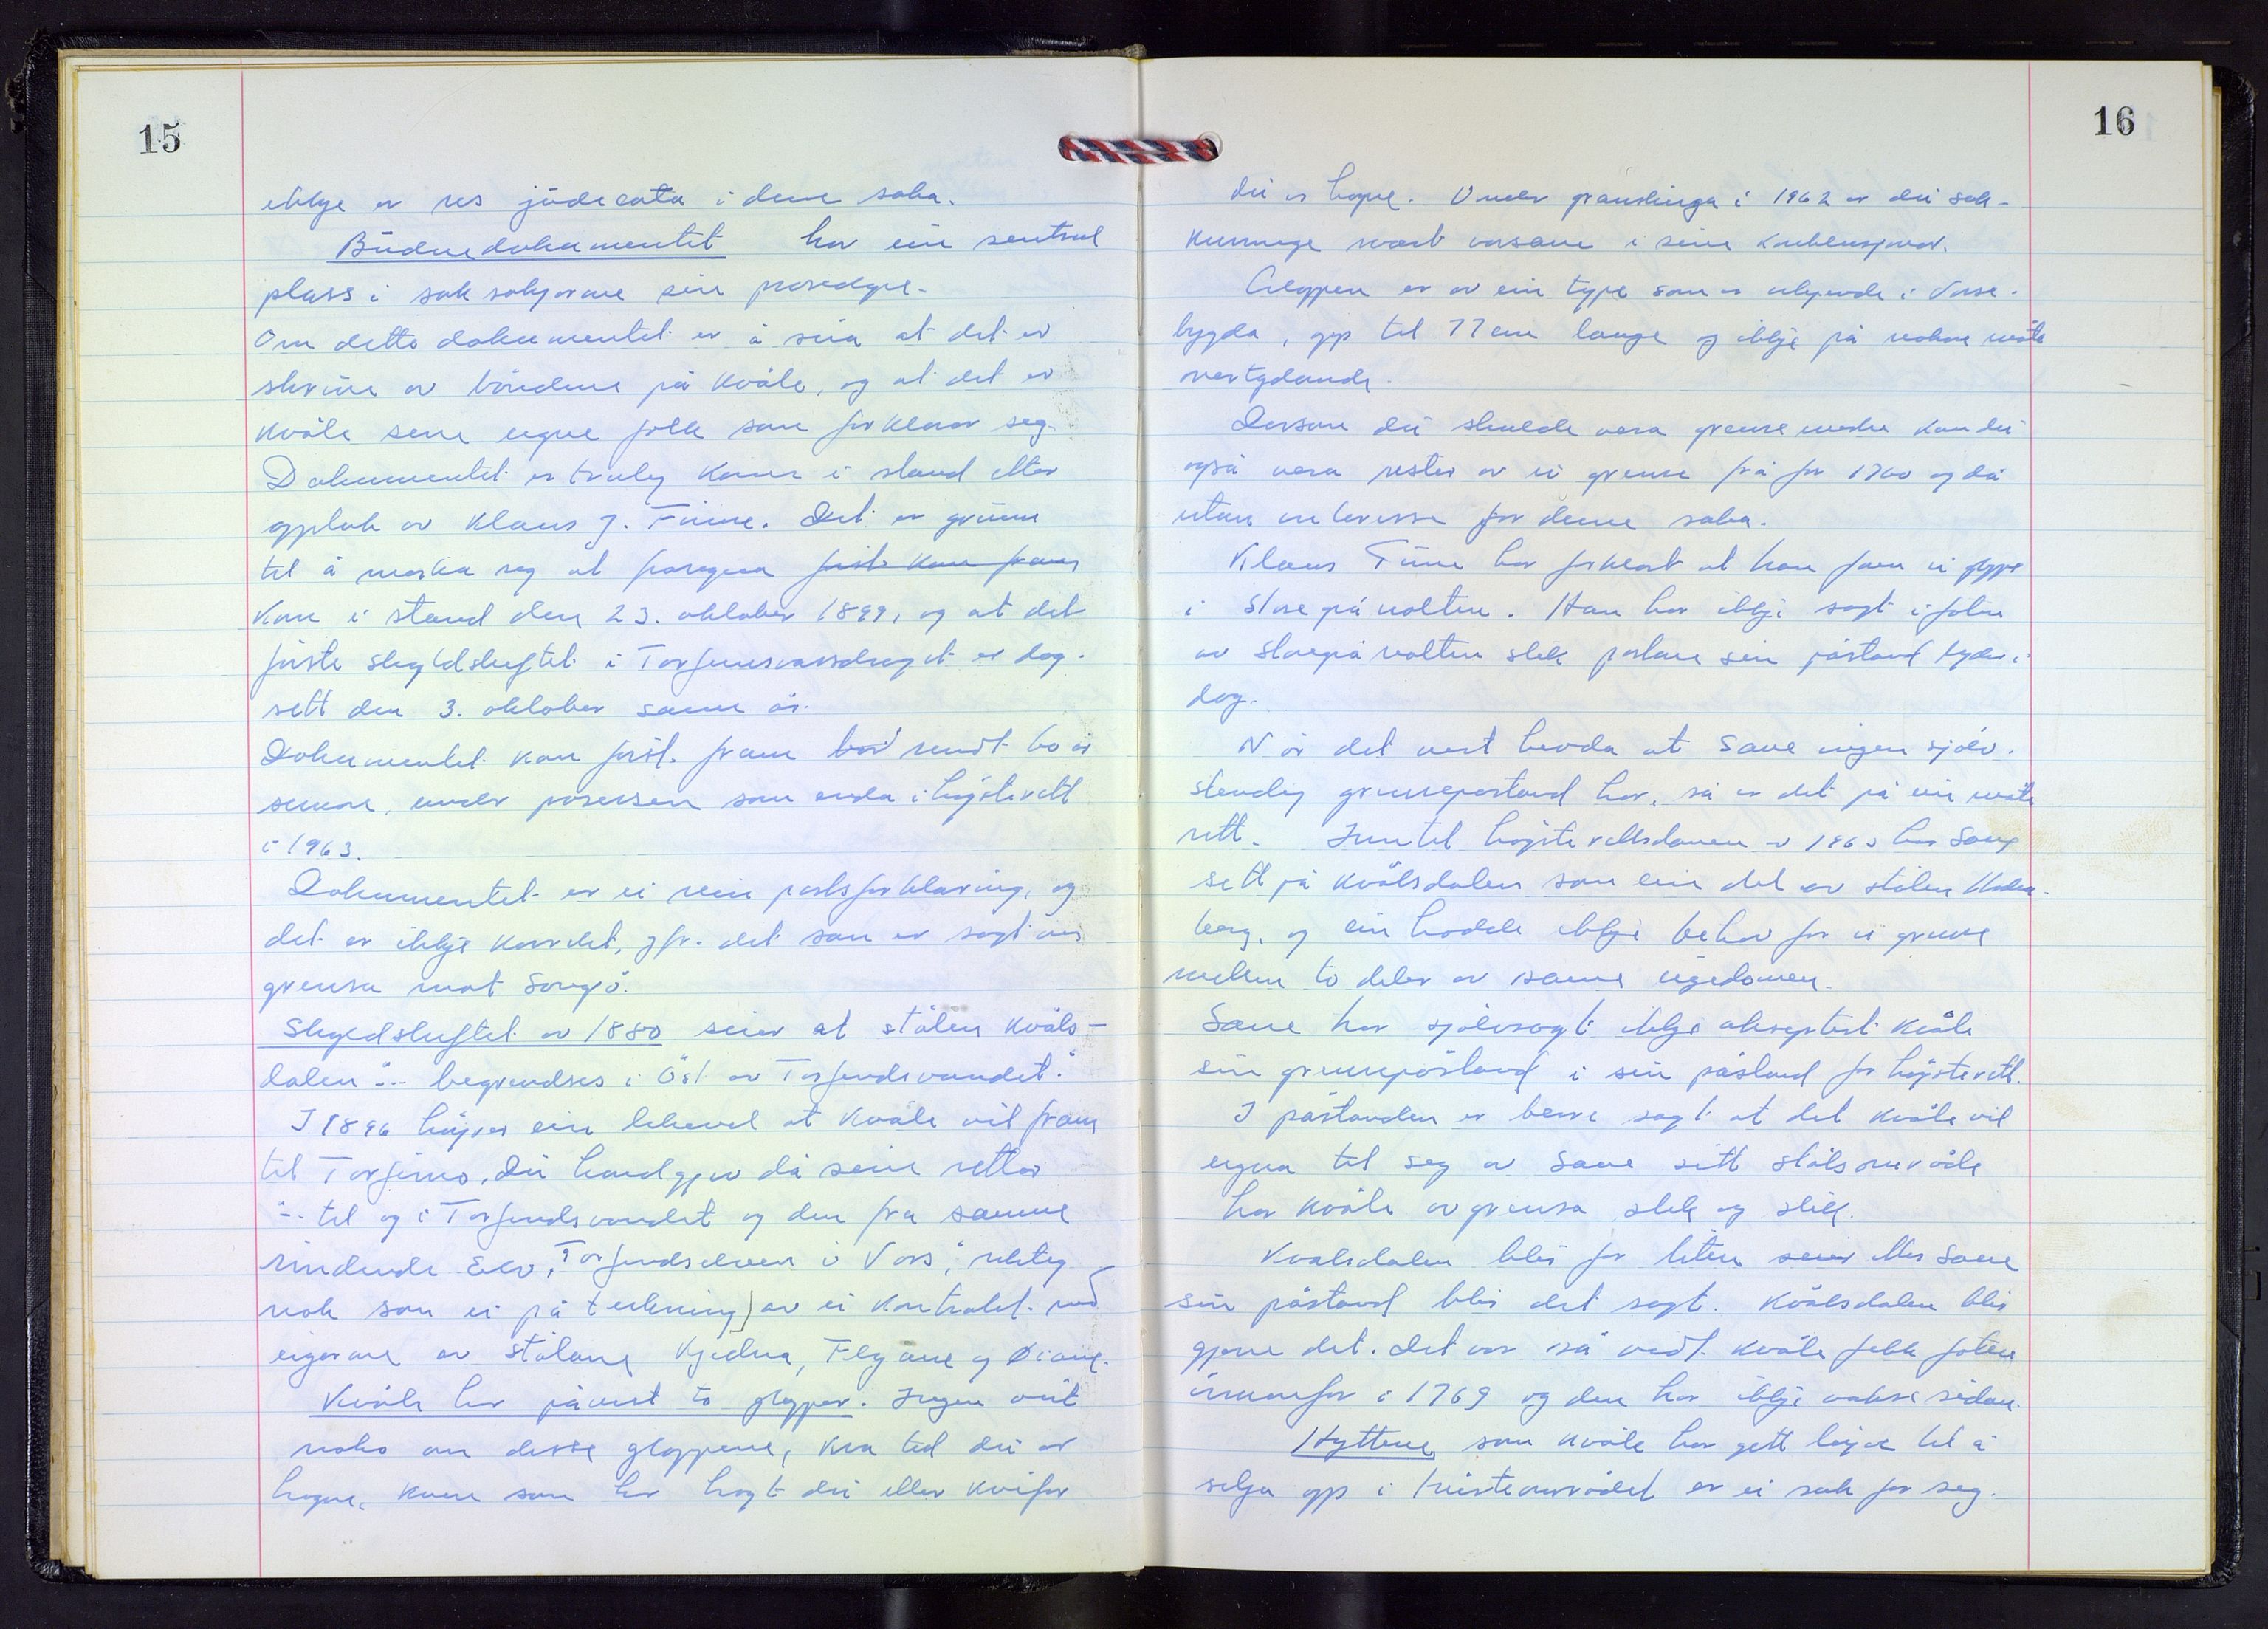 15
ikkje er res judecata i denne saka.
Budnedokumentet har ein sentral
plass i saksøkjarane sin prosedyre.
Om dette dokumentet er å seia at det er
skrive av bøndene på Kvåle, og at det er
Kvåle sine eigne folk som forklarar seg.
Dokumentet er truleg kome i stand etter
opptak av Klaus J. Finne. Det er grunn
til å merka seg at greiene først kom fram
kom i stand den 23. oktober 1899, og at det
første skyldskiftet i Torfinnsvassdraget er dag-
sett den 3. oktober same år.
Dokumentet kom først fram bort rundt 60 år
seinare, under prosessen som enda i høgsterett
i 1963.
Dokumentet er ei rein partsforklaring, og
det er ikkje korrekt, jfr. det som er sagt om
grensa mot Song
Skyldskiftet av 1880 seier at stølen Kvåls-
dalen "- begrendses i Øst av Torfendsvandet."
I 1896 hugsar ein likevel at Kvåle vil fram
til Torfinno. Dei handgjev då sine retter
"- til og i Torfendsvandet og den fra samme
rindende Elv, Torfendselven i Vors", rikteg
nok som ei på teikning] av ei kontrakt med
eigarane av stølane Kjedna, Flyane og Øiane.
Kvåle har påvist to gloppar. Ingen veit
noko om desse gloppene, kva tid dei er
hogne, kven som har hogt dei eller kvifor
16
dei er hogne. Under granskinga i 1962 er dei sak-
kunnige svært varsame i sine konklusjonar.
Gloppen er av ein type som er ukjende i Vosse-
bygda, opp til 77 cm lange og ikkje på nokon måte
vertydande.
Dersom dei skulde vera grensemerke kan dei
også vera rester av ei grense frå før 1760 og då
utan interesse for denne saka.
Klaus Finne har forklart at han fann ei gloppe
i Storepånolten. Han har ikkje sagt i foten
av Storepånolten slik partane sin påstand lyder i
dag.
Når det vert hevda at Saue ingen sjølv-
stendig grensepåstand har, så er det på ein måte
rett. Inntil høgsterettsdommen i 1963 har Saue
sett på Kvålsdalen som ein del av stølen
berg, og ein hadde ikkje behov for ei grense
mellom to deler av same eigedomen.
Saue har sjølvsagt ikkje akseptert Kvåle
sin grensepåstand i sin påstand for høgsterett.
I påstanden er berre sagt at det Kvåle vil
eigna til seg av Saue sitt stølsområde
har Kvåle avgrensa slik og slik.
Kvålsdalen blir for liten seier etter Saue
sin påstand blir det sagt. Kvålsdalen blir
gjerne det. Det var så vidt Kvåle fekk foten
innanfor i 1769 og den har ikkje vakse sidan.
Hyttene som Kvåle har gett løyve til å
setja opp i tvisteområdet er ei sak for seg.